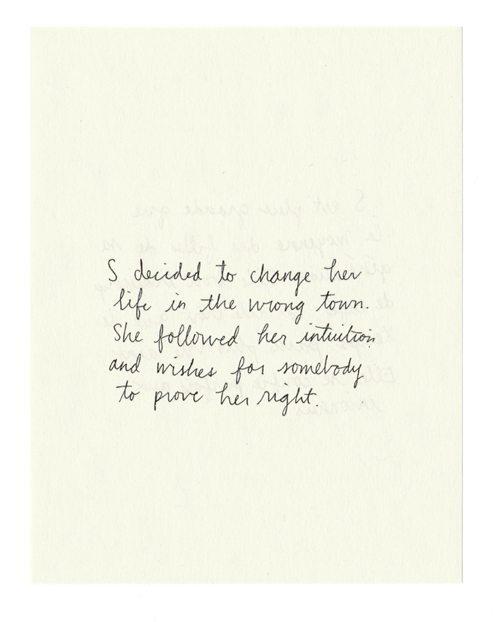 S decided to change her
life in the wrong town.
She followed her intuition
and wishes for somebody
to prove her right.